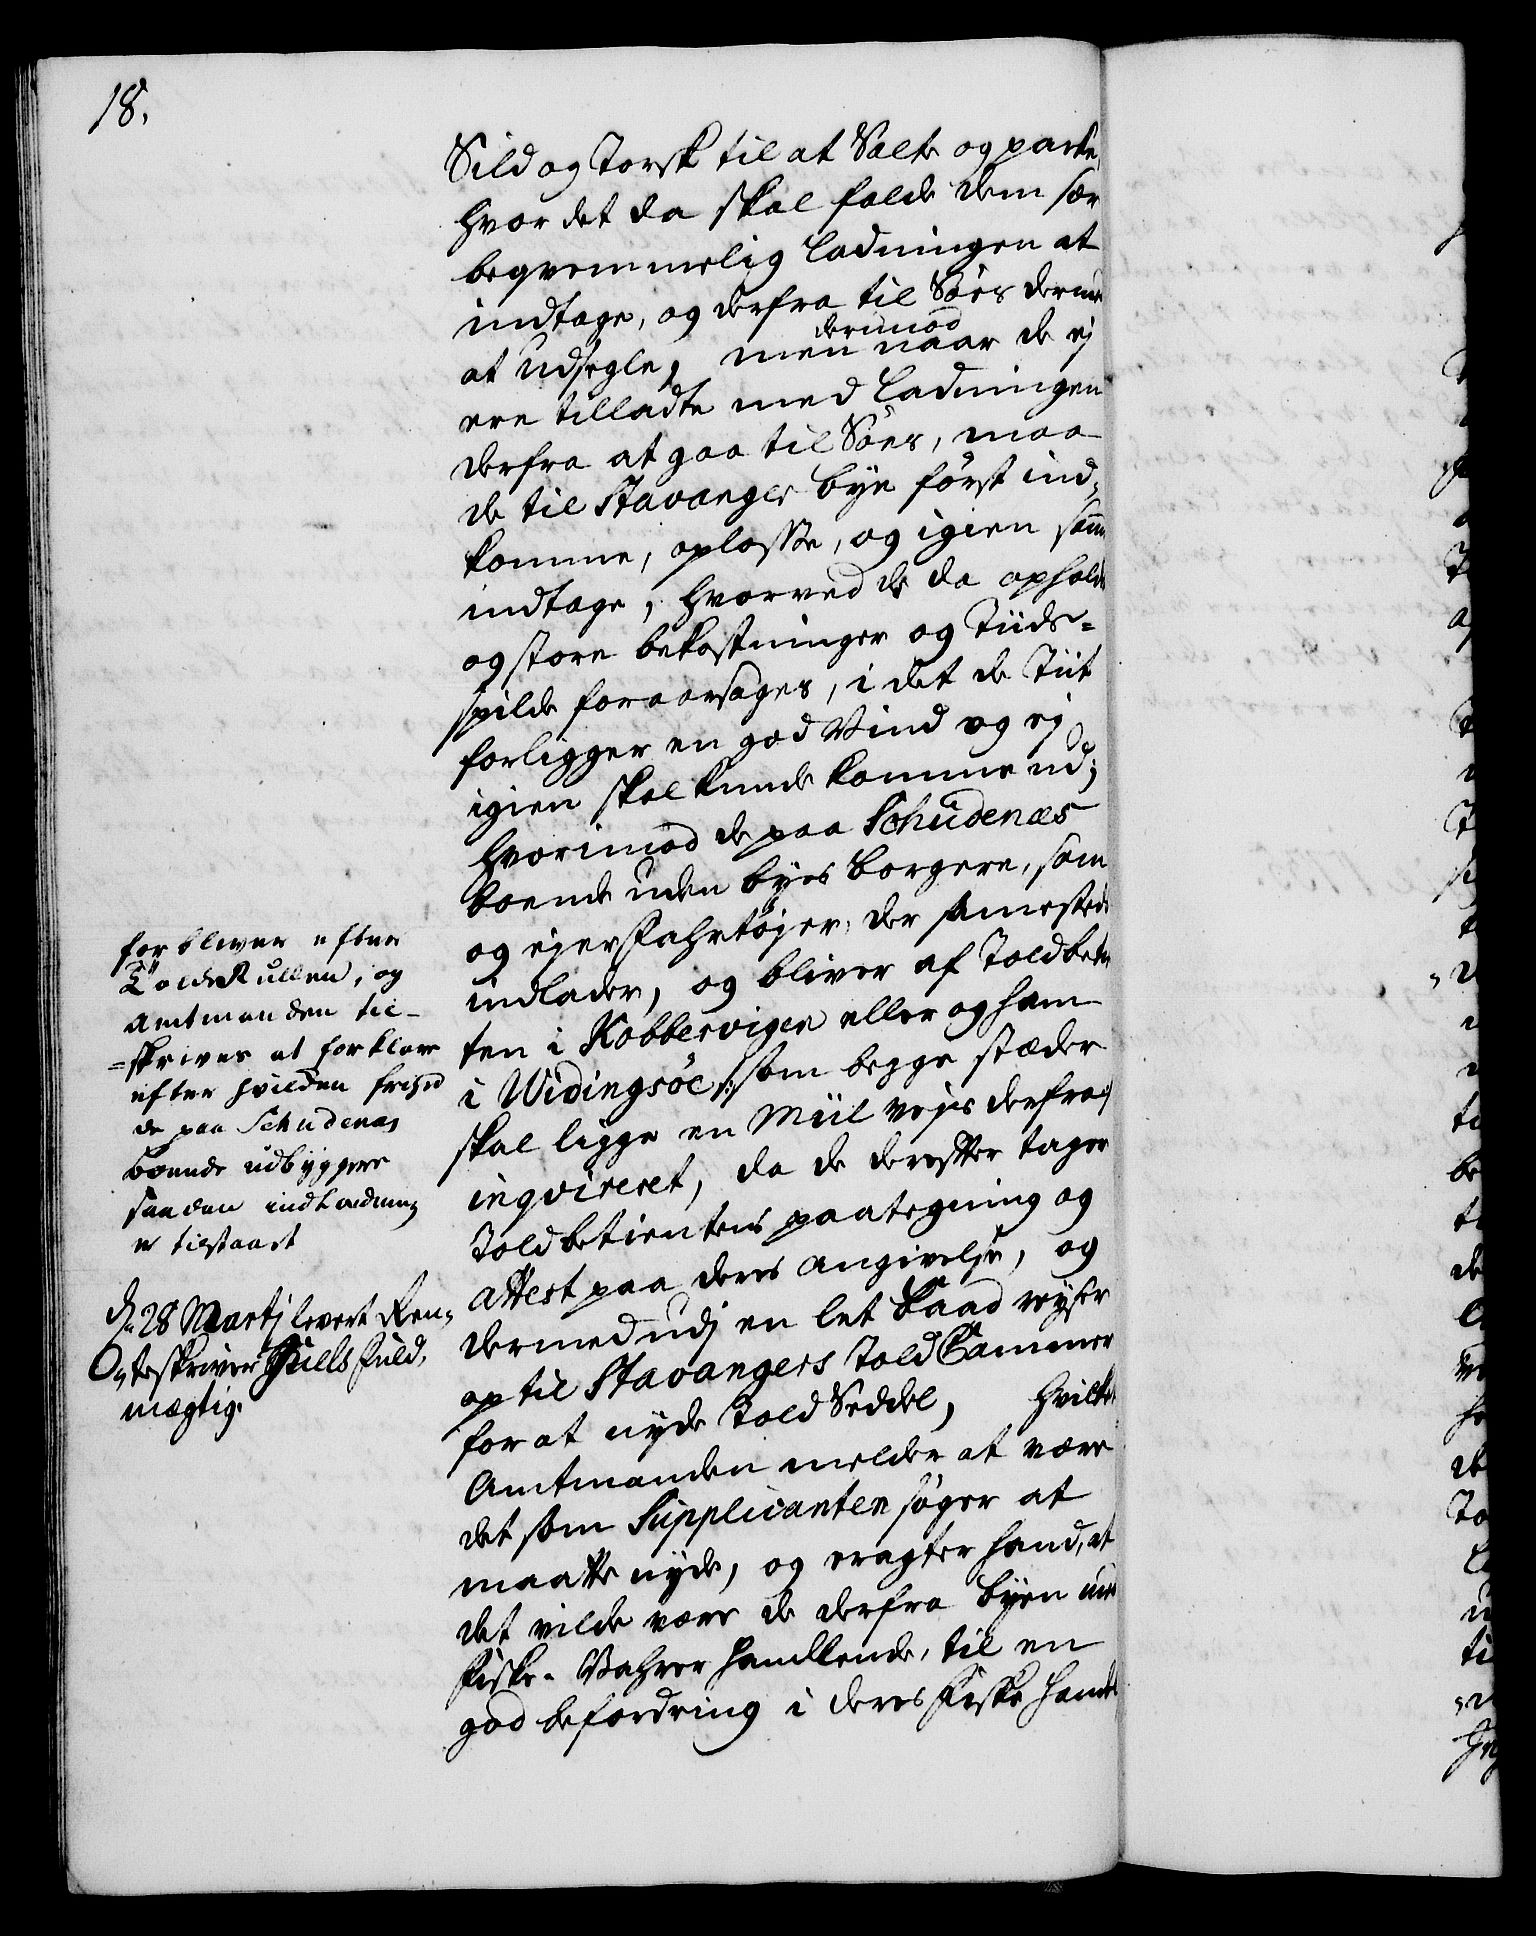 18.
Sild og Torsk til at Salte og pakke,
hvor det da skal falde dem saa
beqvemmelig Ladningen at
indtage, og derfra til Søes dermed
derimod
at udsegle, men naar de ej
ere tilladte med Ladningen
derfra at gaa til Søes, maa
de til Stavanger bye først ind-
komme, oplosse, og igien samme
indtage, hvorved de da ophold
og store bekostninger og Tiids-
spilde foraarsages, i det de Tiit
forligger en god Vind og ej
igien skal kunde komme ud;
hvorimod de paa Schudenæs
boende uden byes borgere, som
og ejer Fahrtøjer, der sammesteds
indlader, og bliver af Toldbetien
ten i Kobbervigen eller og ham
i Widingsøe /: som begge stæder
skal ligge en Miil vejs derfra :/
inqvireret, da de derefter tager
Toldbetientens paategning og
attest paa deres angivelse, og
dermed udj en let Baad reyser
op til Stavangers Told Cammer
for at nyde Told Seddel, hvilket
Amtmanden melder at være
det som Supplicanten søger at
maatte nyde, og eragter hand, at
det vilde være de derfra byen med
Fiske-Vahrer handlende, til en
god befordring i deres Fiske handel
forbliver efter
Told Rullen, og
Amtmanden til-
=skrives at forklare
efter hvilken frihed
de paa Schudenas
boende udbyggere
saadan indladning
er tilstaaet
d. 28 Martj levert Ren-
teskriver Hiells fuld-
mægtig.